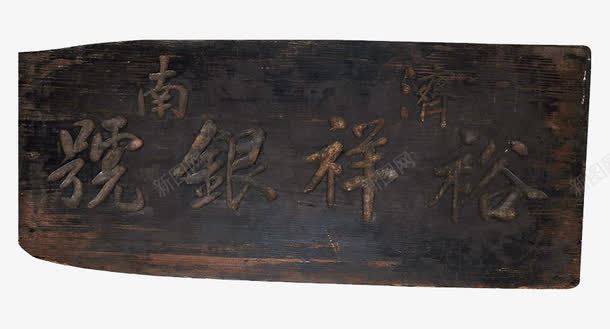 濟南
裕祥銀號